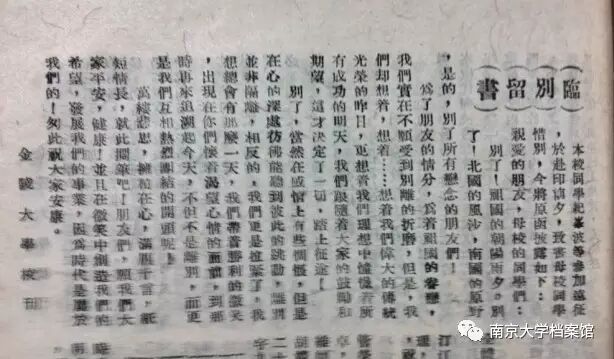 臨別留書
本校同學紀 波等參加遠征
，於赴印 夕，致書母校同學
惜別，今將原函披露如下：
親愛的朋友，母校的同學們：
別了！祖國的朝陽雨夕。別
了！北國的風沙，南國的原野
，是的，別了所有戀念的朋友們！
爲了朋友的情分，爲着祖國的眷戀，
我們實在不願受到別離的折磨，但是，我
們却想着，想着……想着我們偉大的傳統
光榮的昨日，更想着我們理想中憧憬着所
有成功的明天，我們跟隨着大家的鼓勵和
期望，這才決定了一切，踏上征途！
別了，當然在感情上有些惆悵，但是
在心的深處彷彿能聽到彼此的跳動，離別
並非隔離，相反的，我們更是連緊了，我
想總會有那麼一天，我們帶着勝利的微笑
，出現在你們懷着渴望心情的面前，到那
時再來追溯起今天，不但不是離別，而更
是我們互相熱烈團結的開頭呢！
萬縷悲思，擁積在心，滿懷千言，紙
短情長，就此擱筆吧！朋友們，願我們大
家平安，健康！並且在微笑中創造我們的
希望，發展我們的事業，因爲時代是屬於
我們的！匆此祝大家安康。
金陵大學校刊
南京大学档案馆